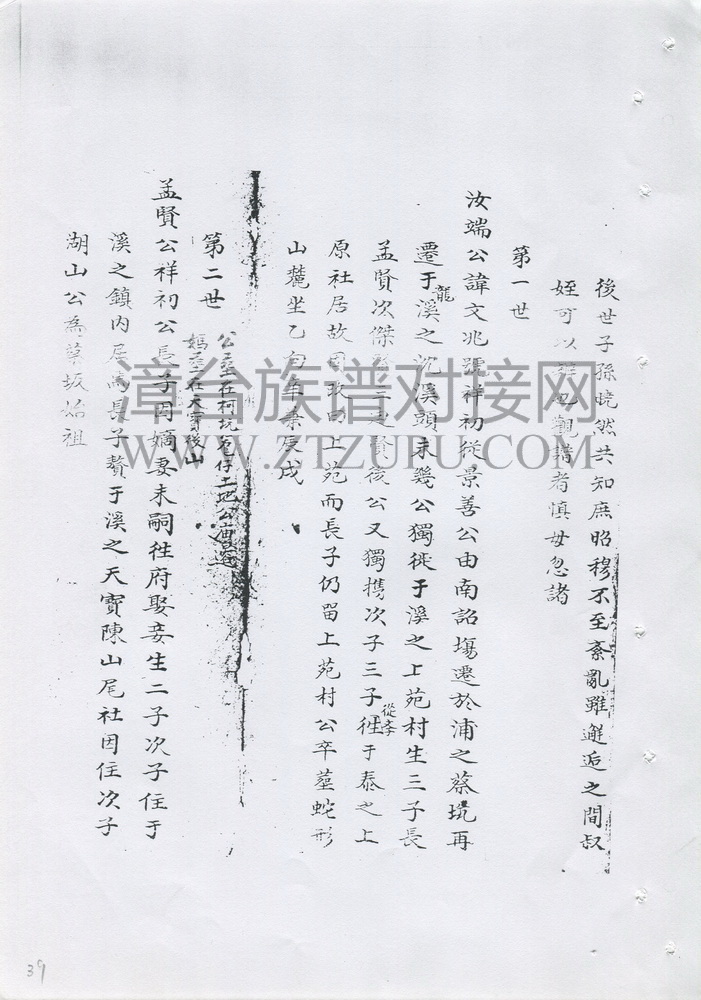 後世子孫曉然共知庶昭穆不至紊亂雖邂逅之間叔
姪可以觀者慎毋忽諸
第一世
汝端公諱文兆號祥初從景善公由南詔塲遷於浦之蔡坑再
遷于龍溪之沈溪頭未幾公獨徙于溪之上苑村生三子長
孟賢次傑三賢後公又獨携次子三子從李徃于泰之上
原社居故曰上苑而長子仍留上苑村公卒塟蛇形
山麓坐乙向辛兼辰戌
公塟在柯坑兔仔土地公廟邊
媽塟在天寶後山
第二世
孟賢公祥初公長子因嫡妻未嗣徃府娶妾生二子次子住于
溪之鎮内居焉長子贅于溪之天寶陳山尾社因住次子
湖山公為草坂始祖
漳台族谱对接网
WWW.ZTZUPU.COM
39